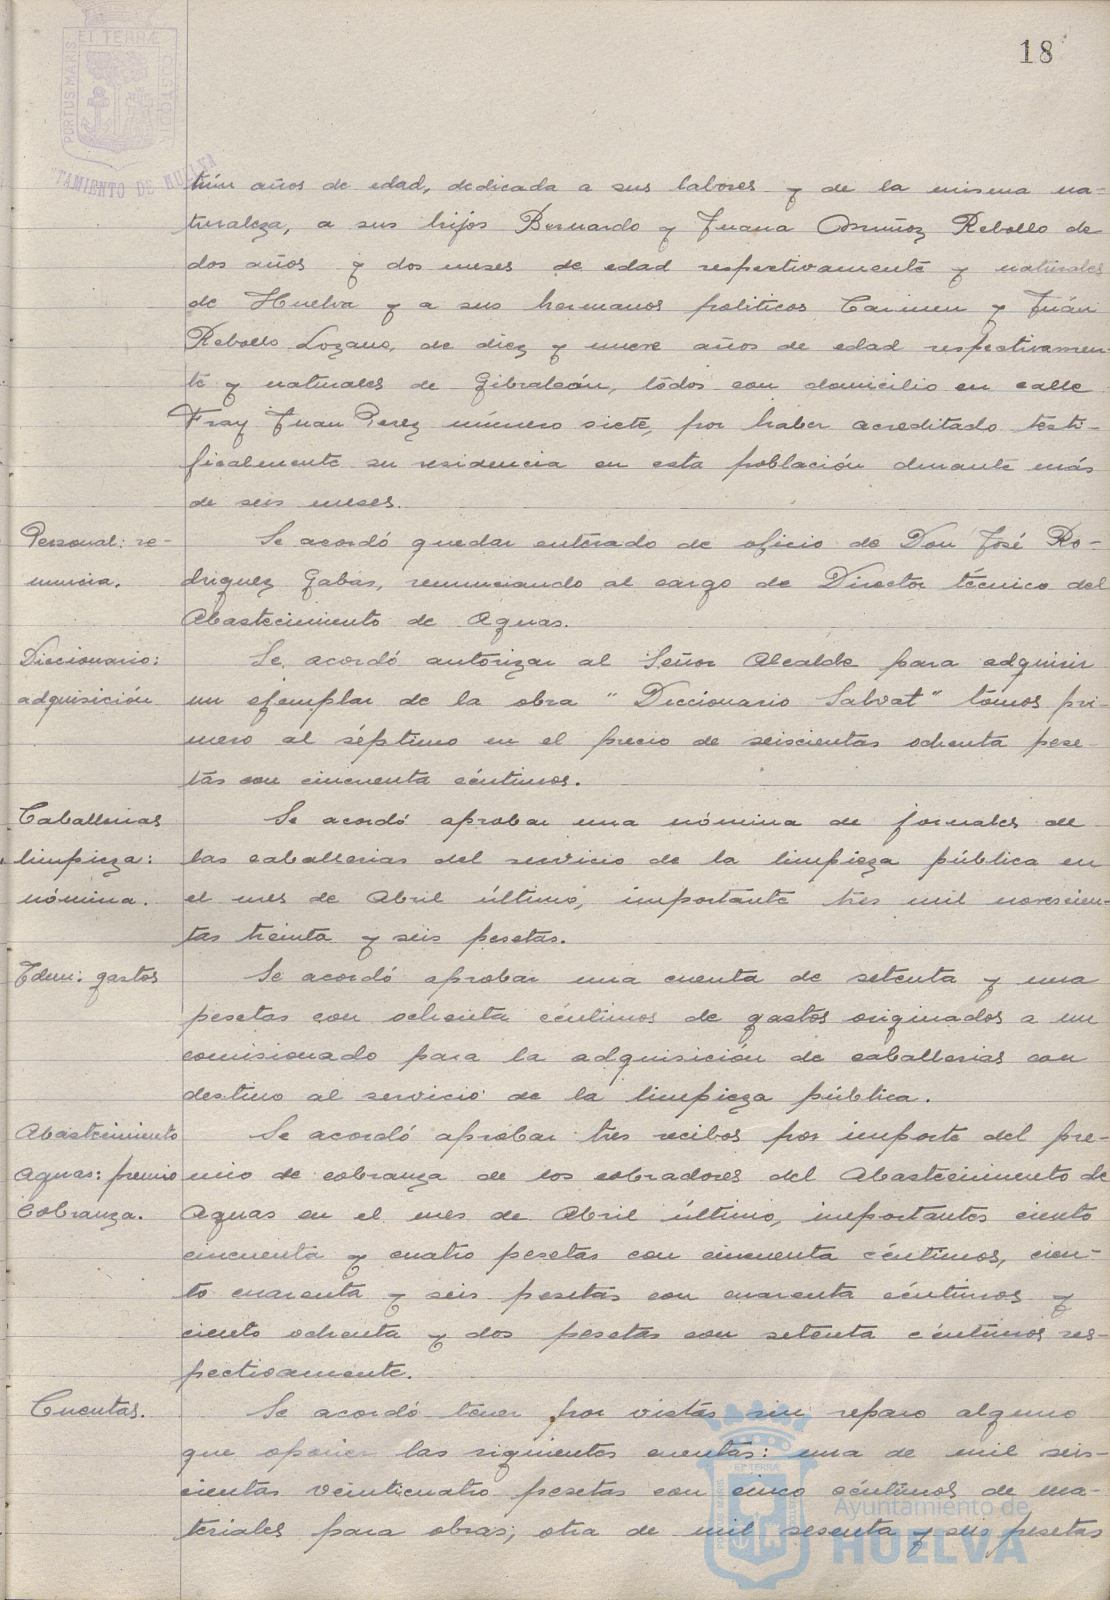 18
PORTUS MARIS ET TERRÆ CUSTODIA
TAMIENTO DE HUELVA
tiún años de edad, dedicada a sus labores y de la misma na-
turaleza, a sus hijos Bernardo y Juana Muñoz Rebollo de
dos años y dos meses de edad respectivamente y naturales
de Huelva y a sus hermanos políticos Carmen y Juán
Rebollo Lozano, de diez y nueve años de edad respectivamen-
te y naturales de Gibraleón, todos con domicilio en calle
Fray Juan Perez número siete, por haber acreditado testi-
ficalmente su residencia en esta población durante más
de seis meses.
Personal: re-
nuncia.
Se acordó quedar enterado de oficio de Don José Ro-
driguez Gabas, renunciando al cargo de Director técnico del
Abastecimiento de Aguas.
Diccionario:
adquisición
Se acordó autorizar al Señor Alcalde para adquirir
un ejemplar de la obra "Diccionario Salvat" tomos pri-
mero al séptimo en el precio de seiscientas ochenta pese-
tas con cincuenta céntimos.
Caballerias
limpieza:
nómina.
Se acordó aprobar una nómina de jornales de
las caballerias del servicio de la limpieza pública en
el mes de Abril último, importante tres mil novescien-
tas treinta y seis pesetas.
Idem: gastos
Se acordó aprobar una cuenta de setenta y una
pesetas con ochenta céntimos de gastos originados a un
comisionado para la adquisición de caballerias con
destino al servicio de la limpieza pública.
Abastecimiento
Aguas: premio
Cobranza.
Se acordó aprobar tres recibos por importe del pre-
mio de cobranza de los cobradores del Abastecimiento de
Aguas en el mes de Abril último, importantes ciento
cincuenta y cuatro pesetas con cincuenta céntimos, cien-
to cuarenta y seis pesetas con cuarenta céntimos y
ciento ochenta y dos pesetas con setenta céntimos res-
pectivamente.
Cuentas.
Se acordó tener por vistas sin reparo alguno
que oponer las siguientes cuentas: una de mil seis-
cientas veinticuatro pesetas con cinco céntimos de ma-
teriales para obras; otra de mil sesenta y seis pesetas
Ayuntamiento de
HUELVA